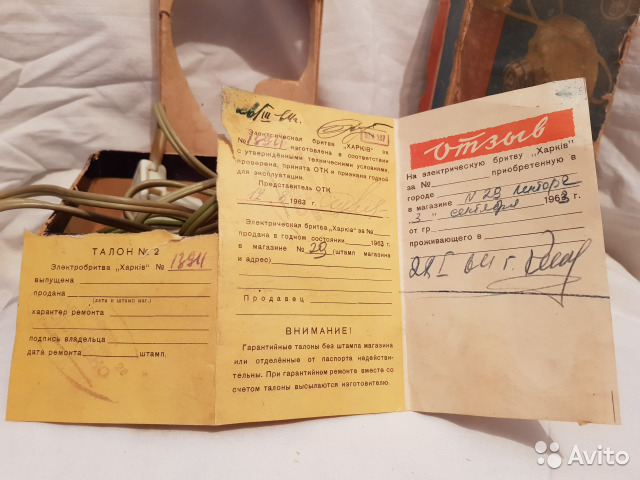 ТАЛОН № 2
Электробритва „Харків" № 1394
выпущена
продана
(дата и штамп маг.)
характер ремонта
подпись владельца
дата ремонта штамп.
Электрическая бритва „ХАРКІВ" за
№ 1394 изготовлена в соответствии
с утверждёнными техническими условиями,
проверена, принята ОТК и признана годной
для эксплуатации.
Представитель ОТК
1963 г.
Электрическая бритва „Харків" за №
продана в годном состоянии 1963 г.
в магазине № 29 (штамп магазина
и адрес)
Продавец
ВНИМАНИЕ!
Гарантийные талоны без штампа магазина
или отделённые от паспорта недействи-
тельны. При гарантийном ремонте вместе со
счетом талоны высылаются изготовителю.
отзыв
На электрическую бритву „Харків"
за № приобретенную в
городе
в магазине N 29
„3" сентября 1963 г.
от гр.
проживающего в
28 I 64 г.
Avito